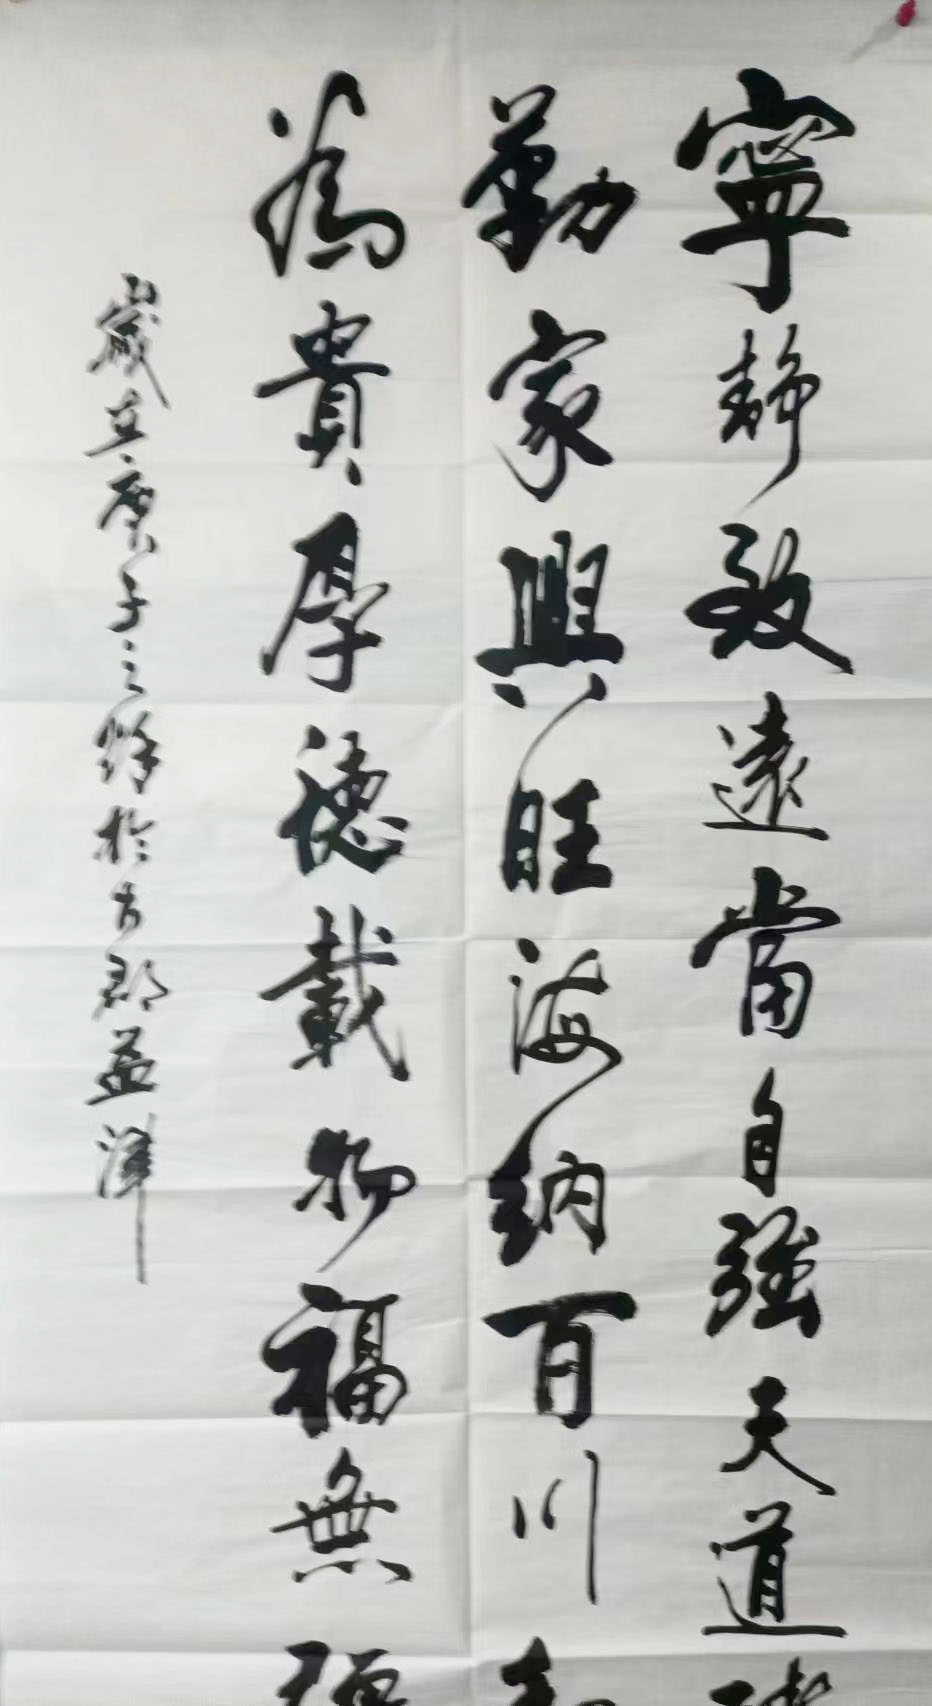 寧靜致遠當自強天道
勤家興旺海納百川
為貴厚德載物福無疆
歲在庚子之秌於古郡益津